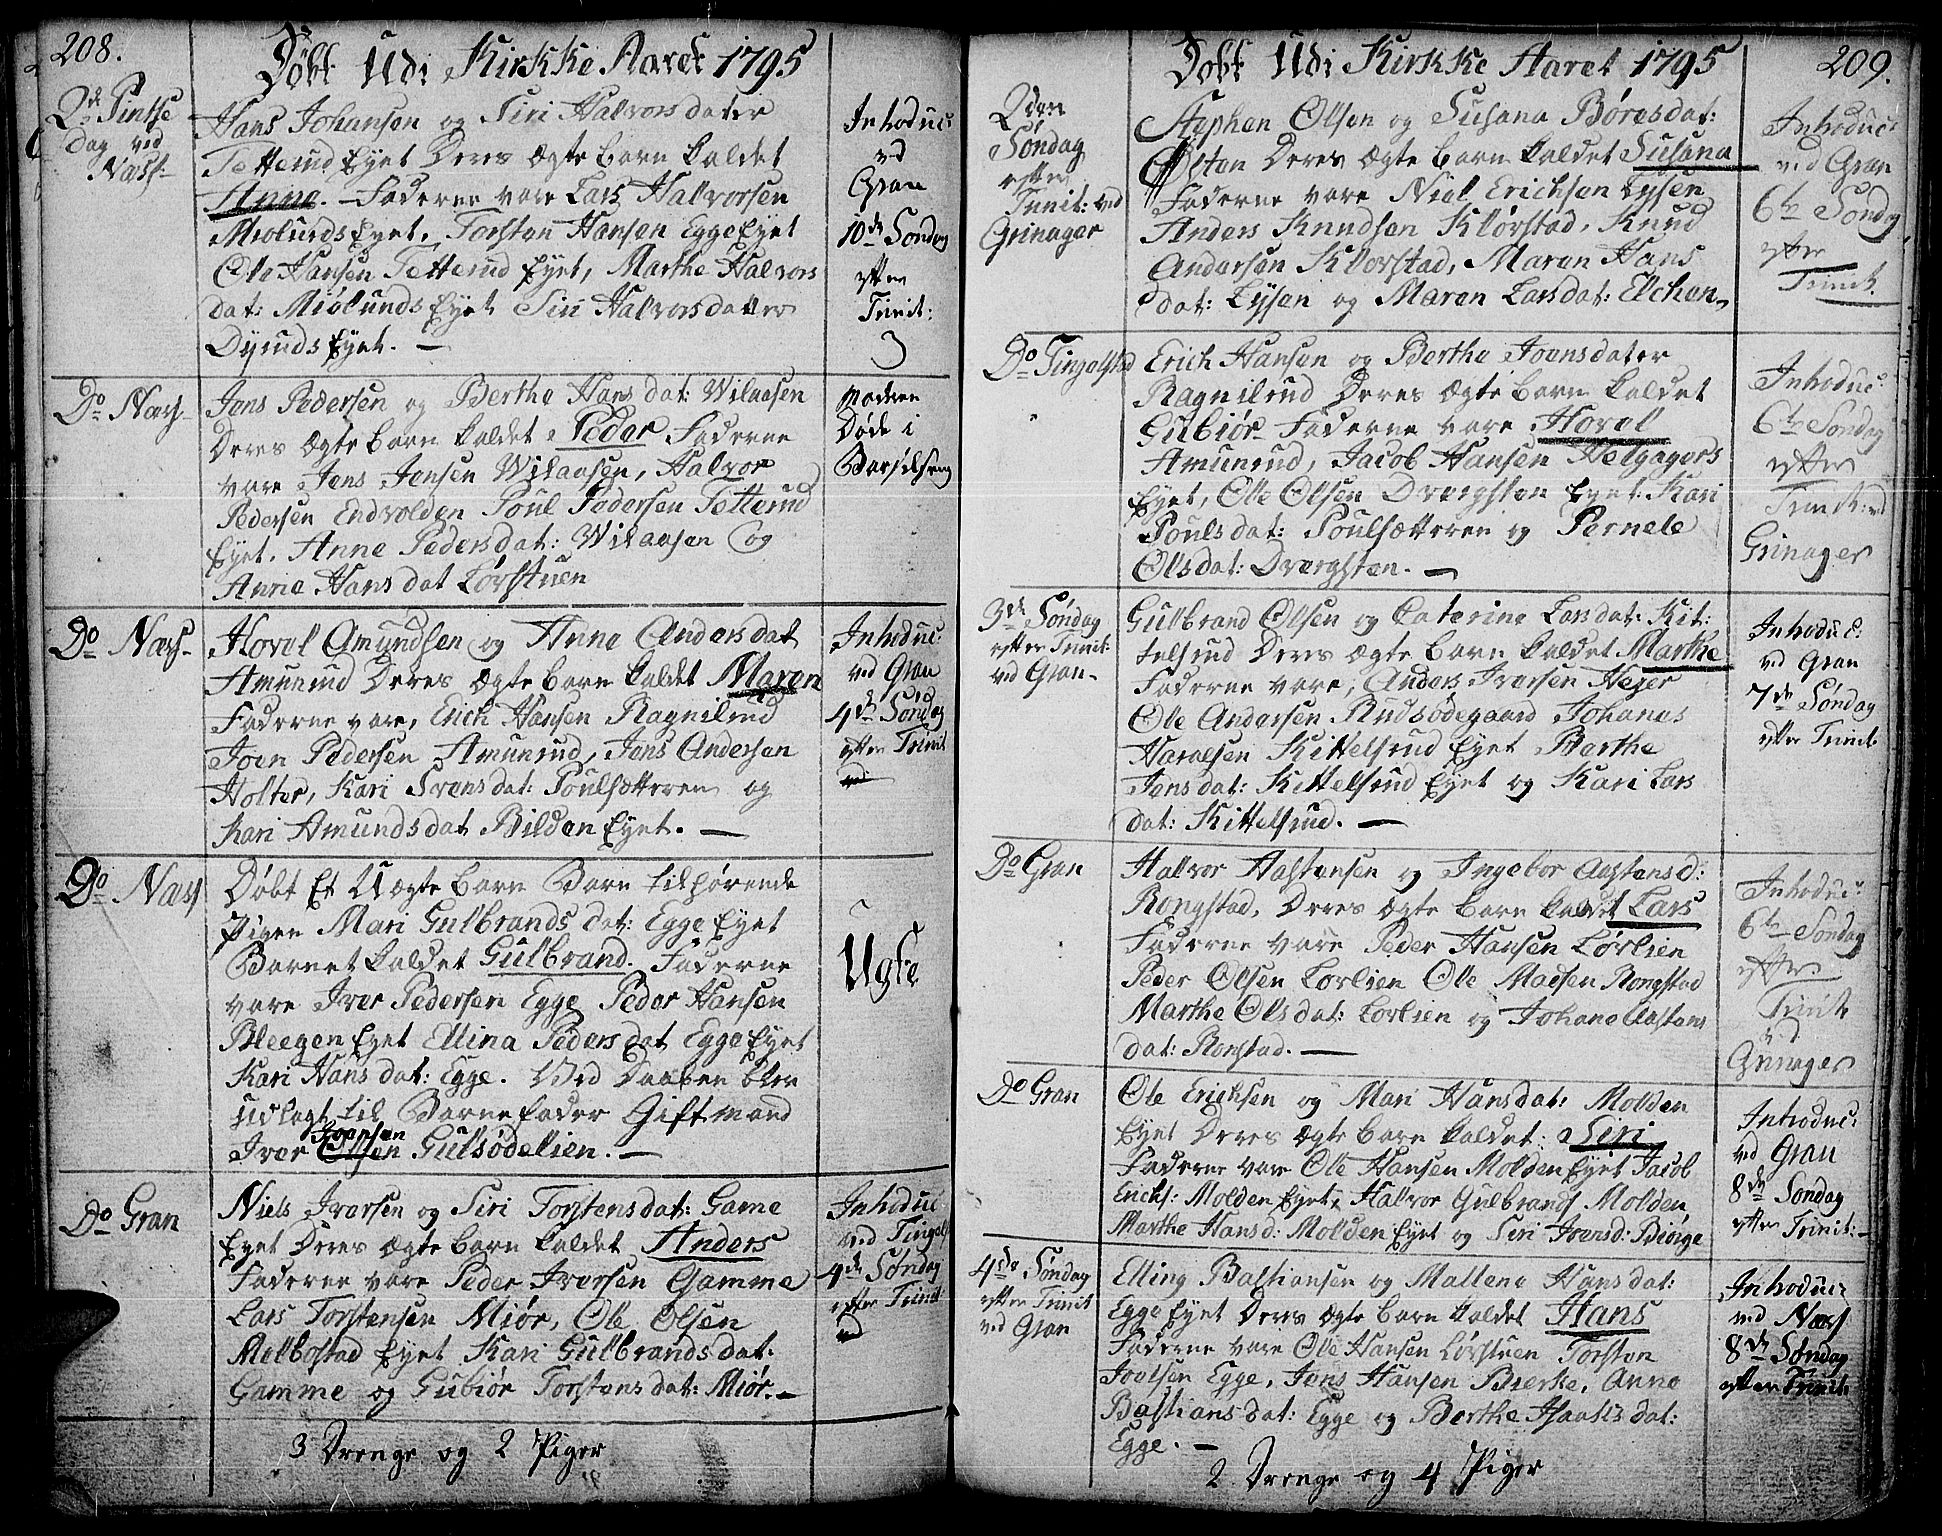 208.
Døbt Udi Kirkke Aaret 1795
2de Pintse
Dag ved
Næss-
Hans Johansen og Siri Halvorsdater
Tetterud Eyet Deres Ægte barn kaldet
Anne. - Fadderne vare Lars Halvorsen
Miølunds Eyet, Torsten Hansen Egge Eyet
Ole Hansen Tetterud Eyet, Marthe Halvors
dat: Miølunds Eyet Siri Halvorsdatter
Dyruds Eyet. -
Introduc:
ved
Gran
10de Søndag
efter
Trinit:
Do Næss-
Jens Pedersen og Berthe Hansdat: Wilaasen
Deres Ægte barn kaldet Peder Fadderne
vare Jens Jensen Wilaasen, Halvor
Pedersen Endvolden Poul Pedersen Tetterud
Eyet, Anne Pedersdat: Wilaasen og
Anne Hansdat Lørstuen
Moderen
Døde i
Barselseng
Do Næss-
Hovel Amundsen og Anne Andersdat
Amunrud Deres Ægte barn kaldet Maren
Fadderne vare, Erich Hansen Ragnilrud
Joen Pedersen Amunrud, Jens Andersen
Holter, Kari Svensdat: Poulsætteren og
Kari Amundsdat Bilden Eyet. -
Introduc:
ved Gran
4de Søndag
efter Trinit
Do Næss
Døbt Et Uægte barn Barn tilhørende
Pigen Mari Gulbrandsdat: Egge Eyet
Barnet kaldet Gulbrand. Fadderne
vare Iver Pedersen Egge Peder Hansen
Bleegen Eyet Ellina Pedersdat Egge Eyet
Kari Hansdat: Egge. Ved Daaben blev
udlagt til Barnefader Gift mand
Iver Olsen Gulsødelien. -
Joensen
Ugte
Do Gran
Niels Iversen og Siri Torstensdat: Game
Eyet Deres Ægte barn kaldet Anders
Fadderne vare Peder Iversen Gamme
Lars Torstensen Miør, Ole Olsen
Melbostad Eyet Kari Gulbrandsdat:
Gamme og Gubiør Torstensdat: Miør. -
Introduc
ved Tingel
4de Søndag
efter Trinit
3 Drenge og 2 Piger
Døbt Udi Kirkke Aaret 1795
209.
2den
Søndag
efter
Trinit: ved
Grinager
Stephen Olsen og Susana Børesdat:
Østen Deres Ægte barn kaldet Susana
Fadderne vare Niel Erichsen Lysen
Anders Knudsen Kløvstad, Knud
Andersen Klovstad, Maren Hans
dat: Lysen og Maren Larsdat: Elchen
Introduc:
ved Gran
6te Søndag
efter
Trinit.
Do Tingelstad
Erich Hansen og Berthe Joensdater
Ragnilrud Deres Ægte barn kaldet
Gubiør Fadderne vare Hovel
Amunrud, Jacob Hansen Helgagers
Eyet, Ole Olsen Dvergsten Eyet: Kari
Poulsdat: Poulsætteren og Pernele
Olsdat: Dvergsten. -
Introduc:
6te Søndag
efter
Trinit: ved
Grinager
3de Søndag
efter Trinit:
ved Gran-
Gulbrand Olsen og Caterine Larsdat: Kit:
telsrud Deres Ægte barn kaldet Marthe
Fadderne vare, Anders Iversen Hejer
Ole Andersen Rudsødegaard Johanes
Haraelsen Kittelsrud Eyet Berthe
Jensdat: Kittelsrud Eyet og Kari Lars
dat: Kittelsrud. -
Introduc:
ved Gran
7de Søndag
efter Trinit.
Do Gran
Hallvor Aastensen og Ingebor Aastensd:
Rongstad, Deres Ægte barn kaldet Lars
Fadderne vare Peder Hansen Lørlien
Peder Olsen Lorlien Ole Madsen Rongstad
Marthe Olsdat: Lorlien og Johane Aastens
dat: Ronstad. -
Introduc:
6te Søndag
efter
Trinit
ved
Grinager
Do Gran
Ole Erichsen og Mari Hansdat: Molden
Eyet Deres Ægte barn kaldet: Siri
Fadderne vare Ole Hansen Molden Eyet Jacob
Erichs: Molden Eyet, Hallvor Gulbrands Molden
Marthe Hansd: Molden Eyet og Siri Iversd: Biørge
Introduc:
ved Gran
8de Søndag
efter
Trinit: -
4de Søndag
efter Trinit
ved Gran
Elling Bastiansen og Mallene Hansdat:
Egge Eyet Deres Ægte barn kaldet Hans
Fadderne vare Ole Hansen Lørstuen Torsten
Joelsen Egge, Jens Hansen Bierke, Anne
Bastiansdat: Egge og Berthe Haaelsdat:
Egge. -
Introduc:
ved Næss
8de Søndag
efter Trinit:
2 Drenge og 4 Piger